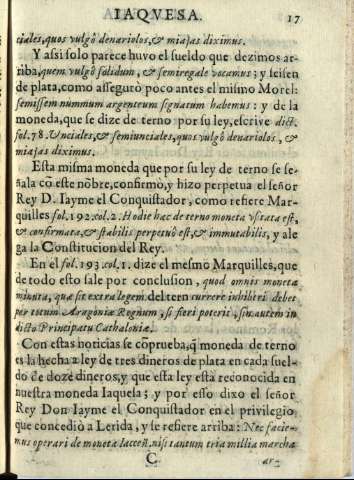 IAQVESA. 17
ciales, quos vulgò denariolos, & miajas diximus.
Y assi solo parece huvo el sueldo que dezimos ar-
riba, quem vulgò solidum, & semiregale vocamus; y seisen
de plata, como assegurò poco antes el mismo Morel:
semissem nummum argenteum signatum habemus: y de la
moneda, que se dize de terno por su ley, escrive dict.
fol. 78. Vnciales, & semiunciales, quos vulgò denariolos, &
miajas diximus.
Esta misma moneda que por su ley de terno se se-
ñala cõ este nõbre, confirmò, y hizo perpetua el señor
Rey D. Iayme el Conquistador, como refiere Mar-
quilles fol. 192. col. 2. Hodie hac de terno moneta vsitata est,
& confirmata, & stabilis perpetuò est, & immutabilis, y ale
ga la Constitucion del Rey.
En el fol. 193. col. 1. dize el mesmo Marquilles, que
de todo esto sale por conclusion, quod omnis moneta
minuta, quæ sit extra legem del tern currere inhiberi debet
per totum Aragoniæ Regnum, si fieri poterit, sin autem in
dicto Principatu Cathaloniæ.
Con estas noticias se cõprueba, q̃ moneda de terno
es la hecha a ley de tres dineros de plata en cada suel-
do de doze dineros, y que esta ley està reconocida en
nuestra moneda Iaquesa; y por esso dixo el señor
Rey Don Iayme el Conquistador en el privilegio
que concediò a Lerida, y se refiere arriba: Nec facie-
mus operari de moneta Iaccesi. nisi tantum tria millia marcha
C ar-